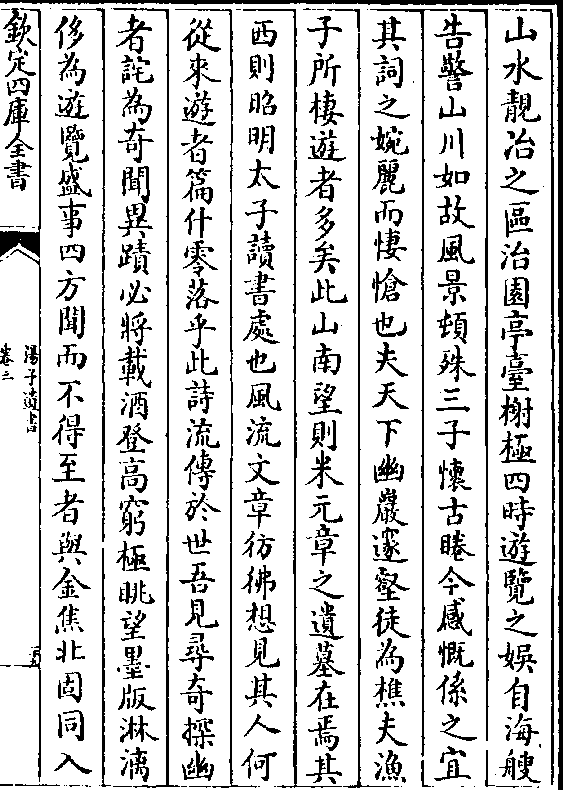 山水靚冶之區治園亭臺榭極四時遊覽之娛自海艘
告警山川如故風景頓殊三子懷古睠今感慨係之宜
其詞之婉麗而悽愴也夫天下幽巖邃壑徒為樵夫漁
子所棲遊者多矣此山南望則米元章之遺墓在焉其
西則昭明太子讀書處也風流文章彷彿想見其人何
從來遊者篇什零落乎此詩流傳於世吾見尋奇探幽
者詫為奇聞異蹟必將載酒登高窮極眺望墨版淋漓
侈為遊覽盛事四方聞而不得至者與金焦北固同入
欽定四庫全書
湯子遺書
卷三